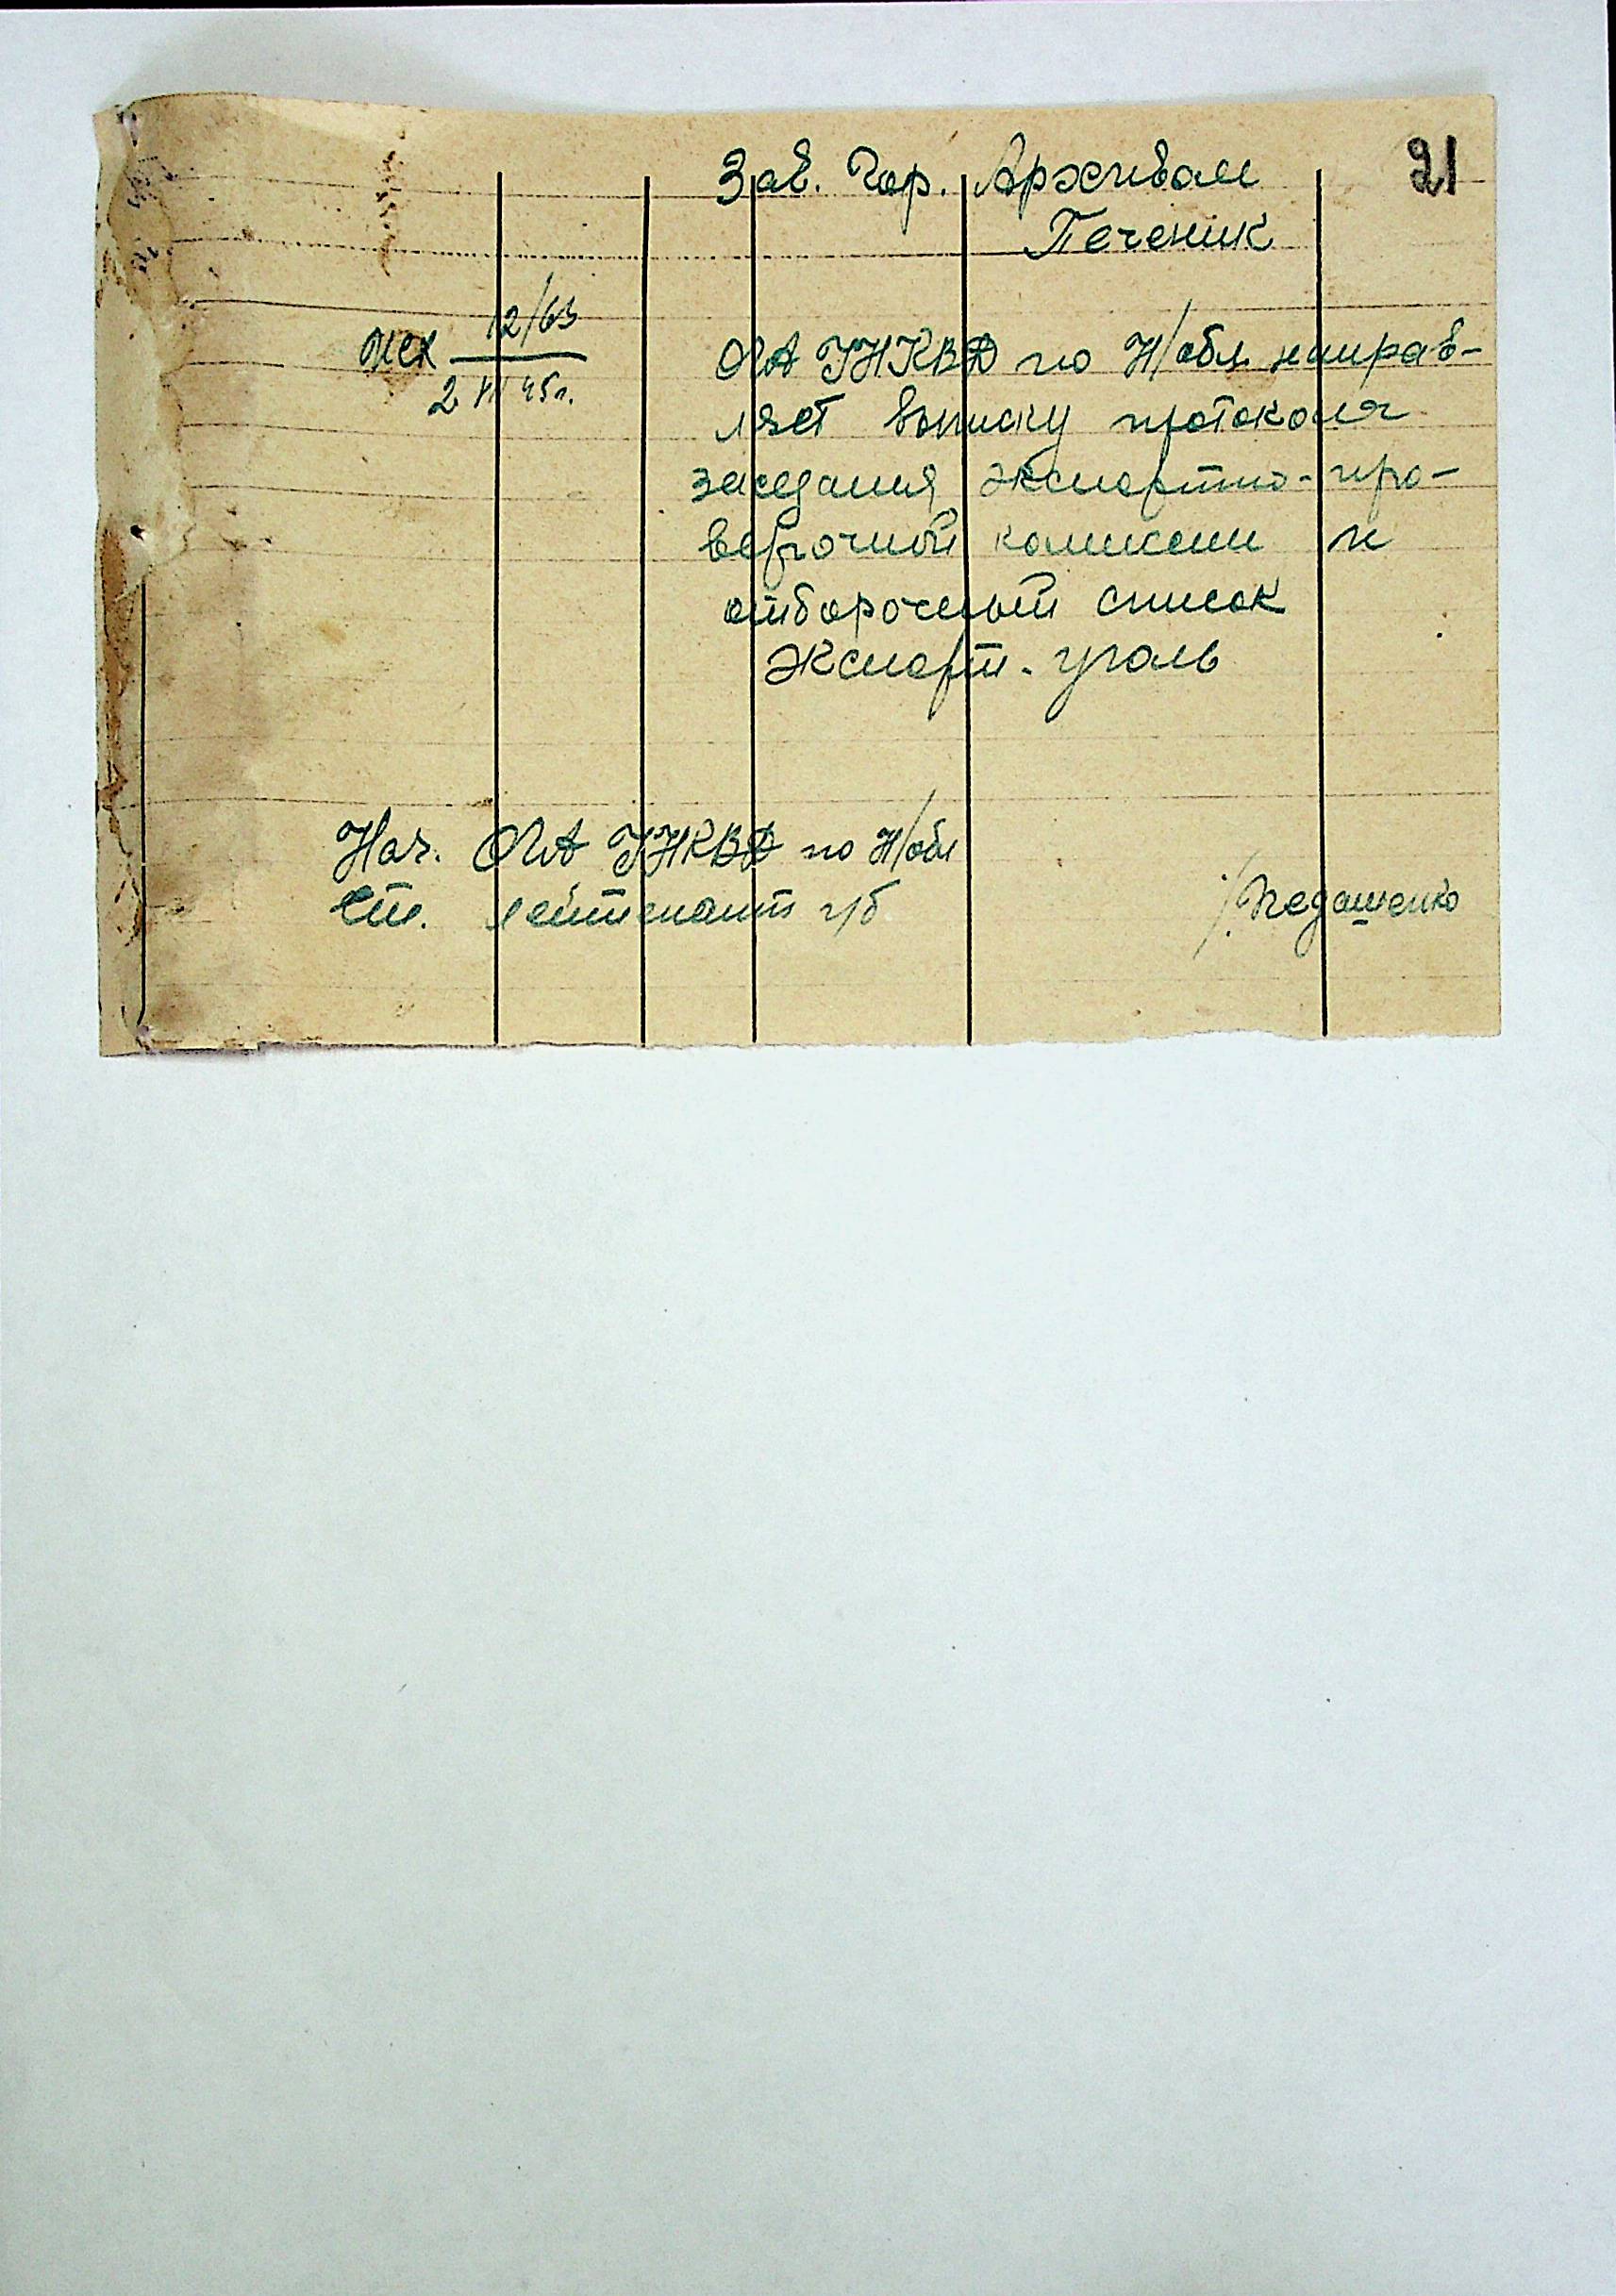 21
Зав. Гор. Архивом
Печеник
исх 12/63
2 VI 45 г.
ОГА УНКВД по Н/обл направ-
ляет выписку протокола
заседания экспертно-про-
верочной комиссии и
отборочный список
Экспорт-уголь
Нач. ОГА УНКВД по Н/обл
Ст. лейтенант г/б
/Недашенко